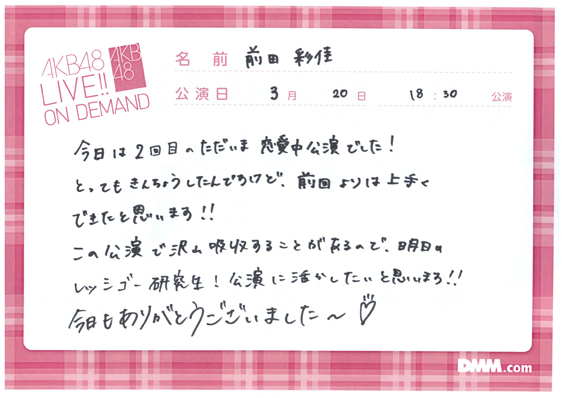 AKB48
LIVE!!
ON DEMAND
AKB
48
名 前 前田 彩佳
公演日 3月 20日 18:30 公演
今日は2回目のただいま 恋愛中公演でした!
とってもきんちょうしたんですけど、前回よりは上手く
できたと思います!!
この公演で沢山吸収することがあるので、明日の
レッツゴー研究生!公演に活かしたいと思います!!
今日もありがとうございました〜♡
DMM.com